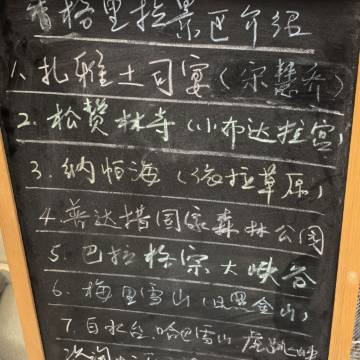 香格里拉景区介绍
1、扎雅土司宴（宋慧乔）
2、松赞林寺（小布达拉宫）
3、纳帕海（依拉草原）
4、普达措国家森林公园
5、巴拉格宗大峡谷
6、梅里雪山（日照金山）
7、白水台、哈巴雪山 虎跳峡
咨询